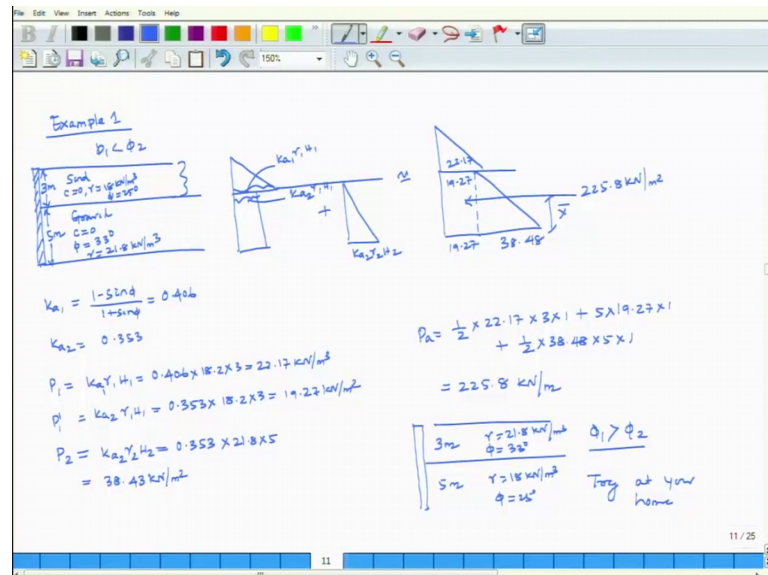 File Edit View Insert Actions Tools Help
B I
150%
Example 1
φ₁ < φ₂
3m Sand
c=0, γ=18 kN/m³
φ=25°
5m Gravel
c=0
φ=33°
γ=21.8 kN/m³
Ka₁γ₁H₁
Ka₂γ₁H₁
+
Ka₂γ₂H₂
≃
22.17
19.27
225.8 kN/m²
x̄
19.27 38.48
Ka₁ = 1-sinφ / 1+sinφ = 0.406
Ka₂ = 0.353
P₁ = Ka₁γ₁H₁ = 0.406 x 18.2 x 3 = 22.17 kN/m³
P₁' = Ka₂γ₁H₁ = 0.353 x 18.2 x 3 = 19.27 kN/m²
P₂ = Ka₂γ₂H₂ = 0.353 x 21.8 x 5
= 38.43 kN/m²
Pa = 1/2 x 22.17 x 3 x 1 + 5 x 19.27 x 1
+ 1/2 x 38.48 x 5 x 1
= 225.8 kN/m
3m γ=21.8 kN/m³
φ=33°
φ₁ > φ₂
5m γ=18 kN/m³
φ=25°
Troy at your
home
11 / 25
11